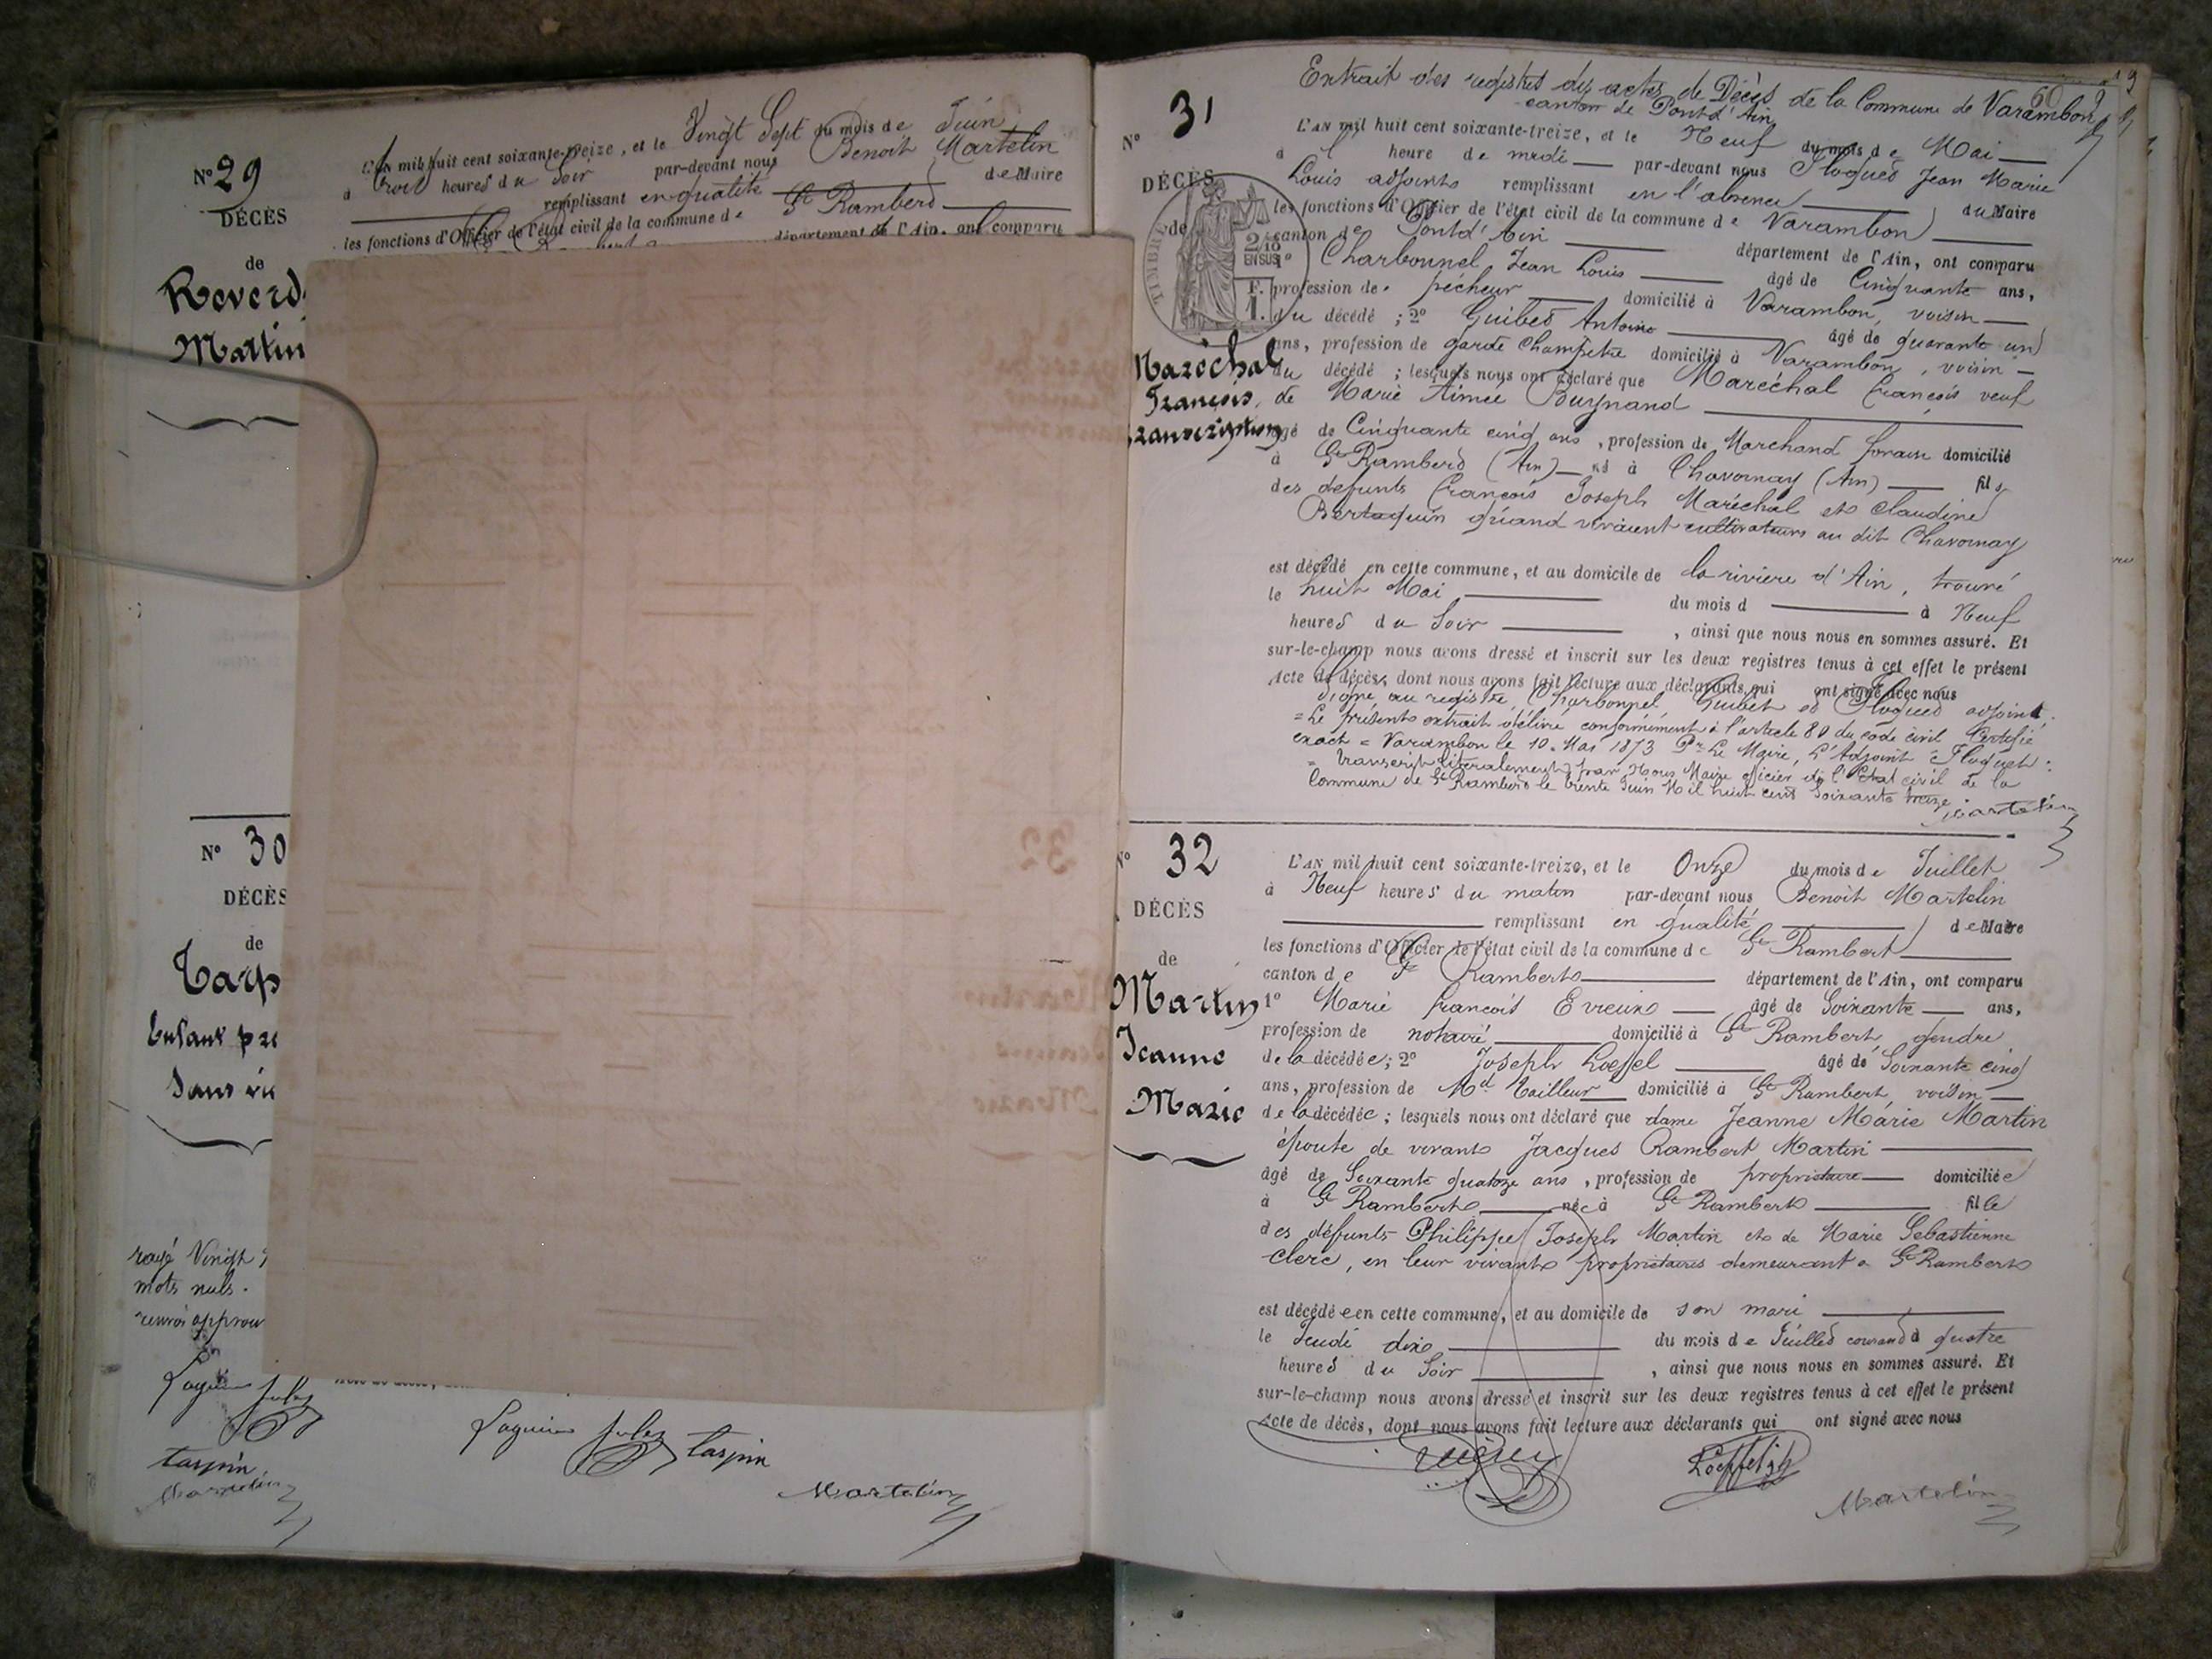 N° 29
DÉCÈS
de
Reverd
Martin
L'AN mil huit cent soixante-treize, et le Vingt Sept du mois de Juin
à trois heures du Soir par-devant nous Benoit Martelin
remplissant en qualité de Maire
les fonctions d'Officier de l'état civil de la commune de St Rambert
département de l'Ain, ont comparu
N° 30
DÉCÈS
de
Tarp
Enfant pré
Sans vie
rayé Vingt
mots nuls.
renvoi approuv
Laguin Jules
Tarpin
Martelin
Laguin Jules Tarpin
Martelin
60
Extrait des registres des actes de Décès de la Commune de Varambon
canton de Pont d'Ain
N° 31
DÉCÈS
de
TIMBRE
2/10
EN SUS
1 F.
Maréchal
François
transcription
L'AN mil huit cent soixante-treize, et le Neuf du mois de Mai
à 1 heure de midi par-devant nous Floquet Jean Marie
Louis adjoint remplissant en l'absence du Maire
les fonctions d'Officier de l'état civil de la commune de Varambon
canton de Pont d'Ain département de l'Ain, ont comparu
1° Charbonnel Jean Louis âgé de Cinquante ans,
profession de pêcheur domicilié à Varambon, voisin
du décédé ; 2° Guibet Antoine âgé de quarante un
ans, profession de garde Champêtre domicilié à Varambon, voisin
du décédé ; lesquels nous ont déclaré que Maréchal François veuf
de Marie Aimée Buynand
âgé de Cinquante cinq ans, profession de Marchand forain domicilié
à St Rambert (Ain) né à Chavornay (Ain) fils
des defunts François Joseph Maréchal et Claudine
Bertaquin quand vivaient cultivateurs au dit Chavornay
est décédé en cette commune, et au domicile de la rivière d'Ain, trouvé
le huit Mai du mois d à Neuf
heures du Soir, ainsi que nous nous en sommes assuré. Et
sur-le-champ nous avons dressé et inscrit sur les deux registres tenus à cet effet le présent
Acte de décès, dont nous avons fait lecture aux déclarants, qui ont signé avec nous
Signé au registre Charbonnel Guibet et Floquet adjoint.
= Le présent extrait délivré conformément à l'article 80 du code civil Certifié
exact = Varambon le 10 Mai 1873 Pr Le Maire, L'Adjoint = Floquet =
= Transcrit literalement par Nous Maire officier de l'Etat civil de la
Commune de St Rambert le trente Juin Mil huit cent Soixante treize
Martelin
N° 32
DÉCÈS
de
Martin
Jeanne
Marie
L'AN mil huit cent soixante-treize, et le Onze du mois de Juillet
à Neuf heures du matin par-devant nous Benoit Martelin
remplissant en qualité de Maire
les fonctions d'Officier de l'état civil de la commune de St Rambert
canton de St Rambert département de l'Ain, ont comparu
1° Marie François Evreux âgé de Soixante ans,
profession de notaire domicilié à St Rambert, gendre
de la décédée ; 2° Joseph Loeffel âgé de Soixante cinq
ans, profession de Md tailleur domicilié à St Rambert, voisin
de la décédée ; lesquels nous ont déclaré que dame Jeanne Marie Martin
épouse de vivant Jacques Rambert Martin
âgé de Soixante quatorze ans, profession de propriétaire domiciliée
à St Rambert née à St Rambert fille
des défunts Philippe Joseph Martin et de Marie Sebastienne
Clerc, en leur vivant propriétaires demeurant à St Rambert
est décédée en cette commune, et au domicile de son mari
le Jeudi dix du mois de Juillet courant à quatre
heures du Soir, ainsi que nous nous en sommes assuré. Et
sur-le-champ nous avons dressé et inscrit sur les deux registres tenus à cet effet le présent
Acte de décès, dont nous avons fait lecture aux déclarants qui ont signé avec nous
Loeffel
Martelin